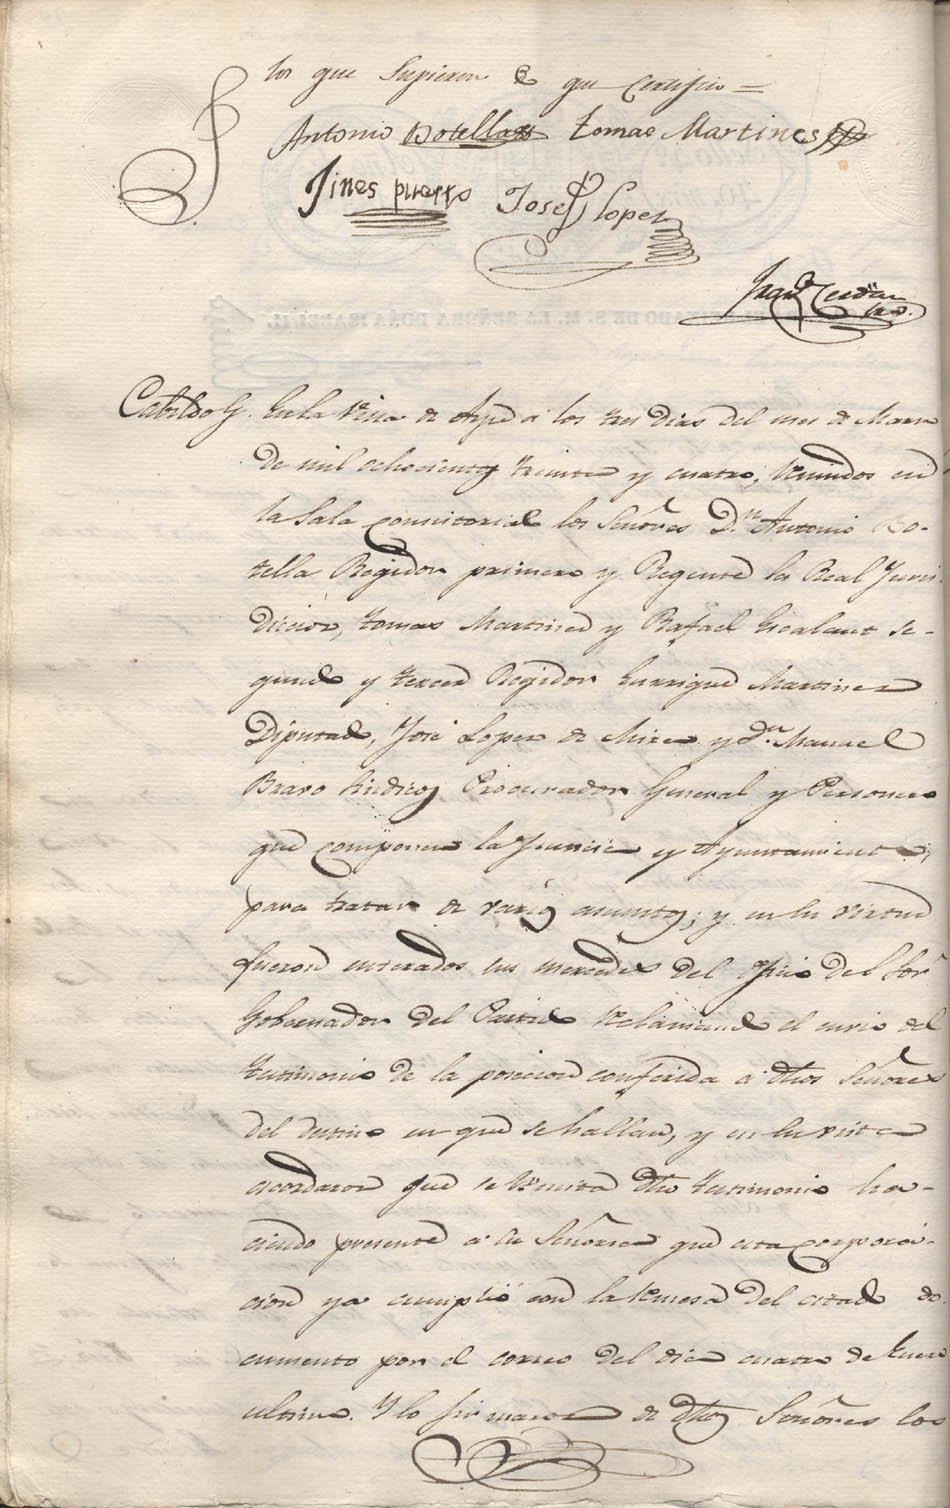 los que supieron de que certifico =
Antonio Botella Tomas Martines
Jines puerto Josef Lopez
Fran.co Cerdan
Cabildo En la Villa de Aspe a los tres dias del mes de Marzo
de mil ochocientos treinta y cuatro, reunidos en
la Sala consistorial los Señores D.n Antonio Bo-
tella Regidor primero y Regente la Real Juris
diccion, Tomas Martinez y Rafael Gealant se-
gundo y tercer Regidor Enrrique Martinez
Diputado, José Lopez de Mira y D.n Manuel
Bravo Sindico Procurador General y Personero
que componen la Justicia y Ayuntamiento,
para tratar de varios asuntos; y en su virtud
fueron enterados sus mercedes del oficio del Sor
Gobernador del Partido reclamando el envio del
testimonio de la posecion conferida a dhos Señores
del destino en que se hallan, y en su vista
acordaron que se remita dho testimonio ha-
ciendo presente a su Señoria que esta corpora-
cion ya cumplió con la remesa del citado do
cumento por el correo del dia cuatro de Enero
ultimo. Y lo firmaron de dhos Señores los